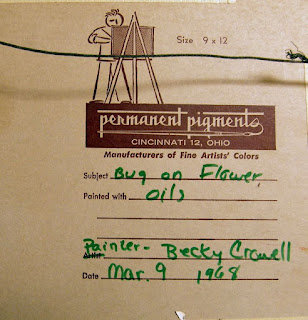 Size 9 x 12
permanent pigments
CINCINNATI 12, OHIO
Manufacturers of Fine Artists' Colors
Subject Bug on Flower
Painted with oils
Painter - Becky Crowell
Artist
Date Mar. 9 1968